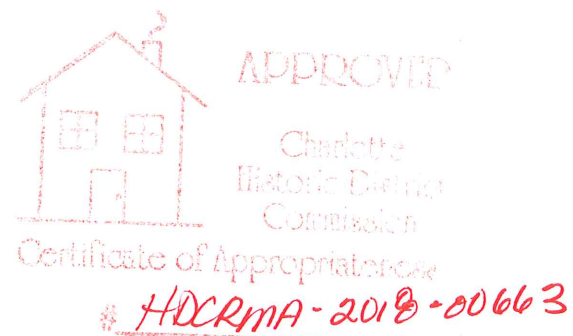 APPROVED
Charlotte
Historic District
Commission
Certificate of Appropriateness
# HDCRMA-2018-00663